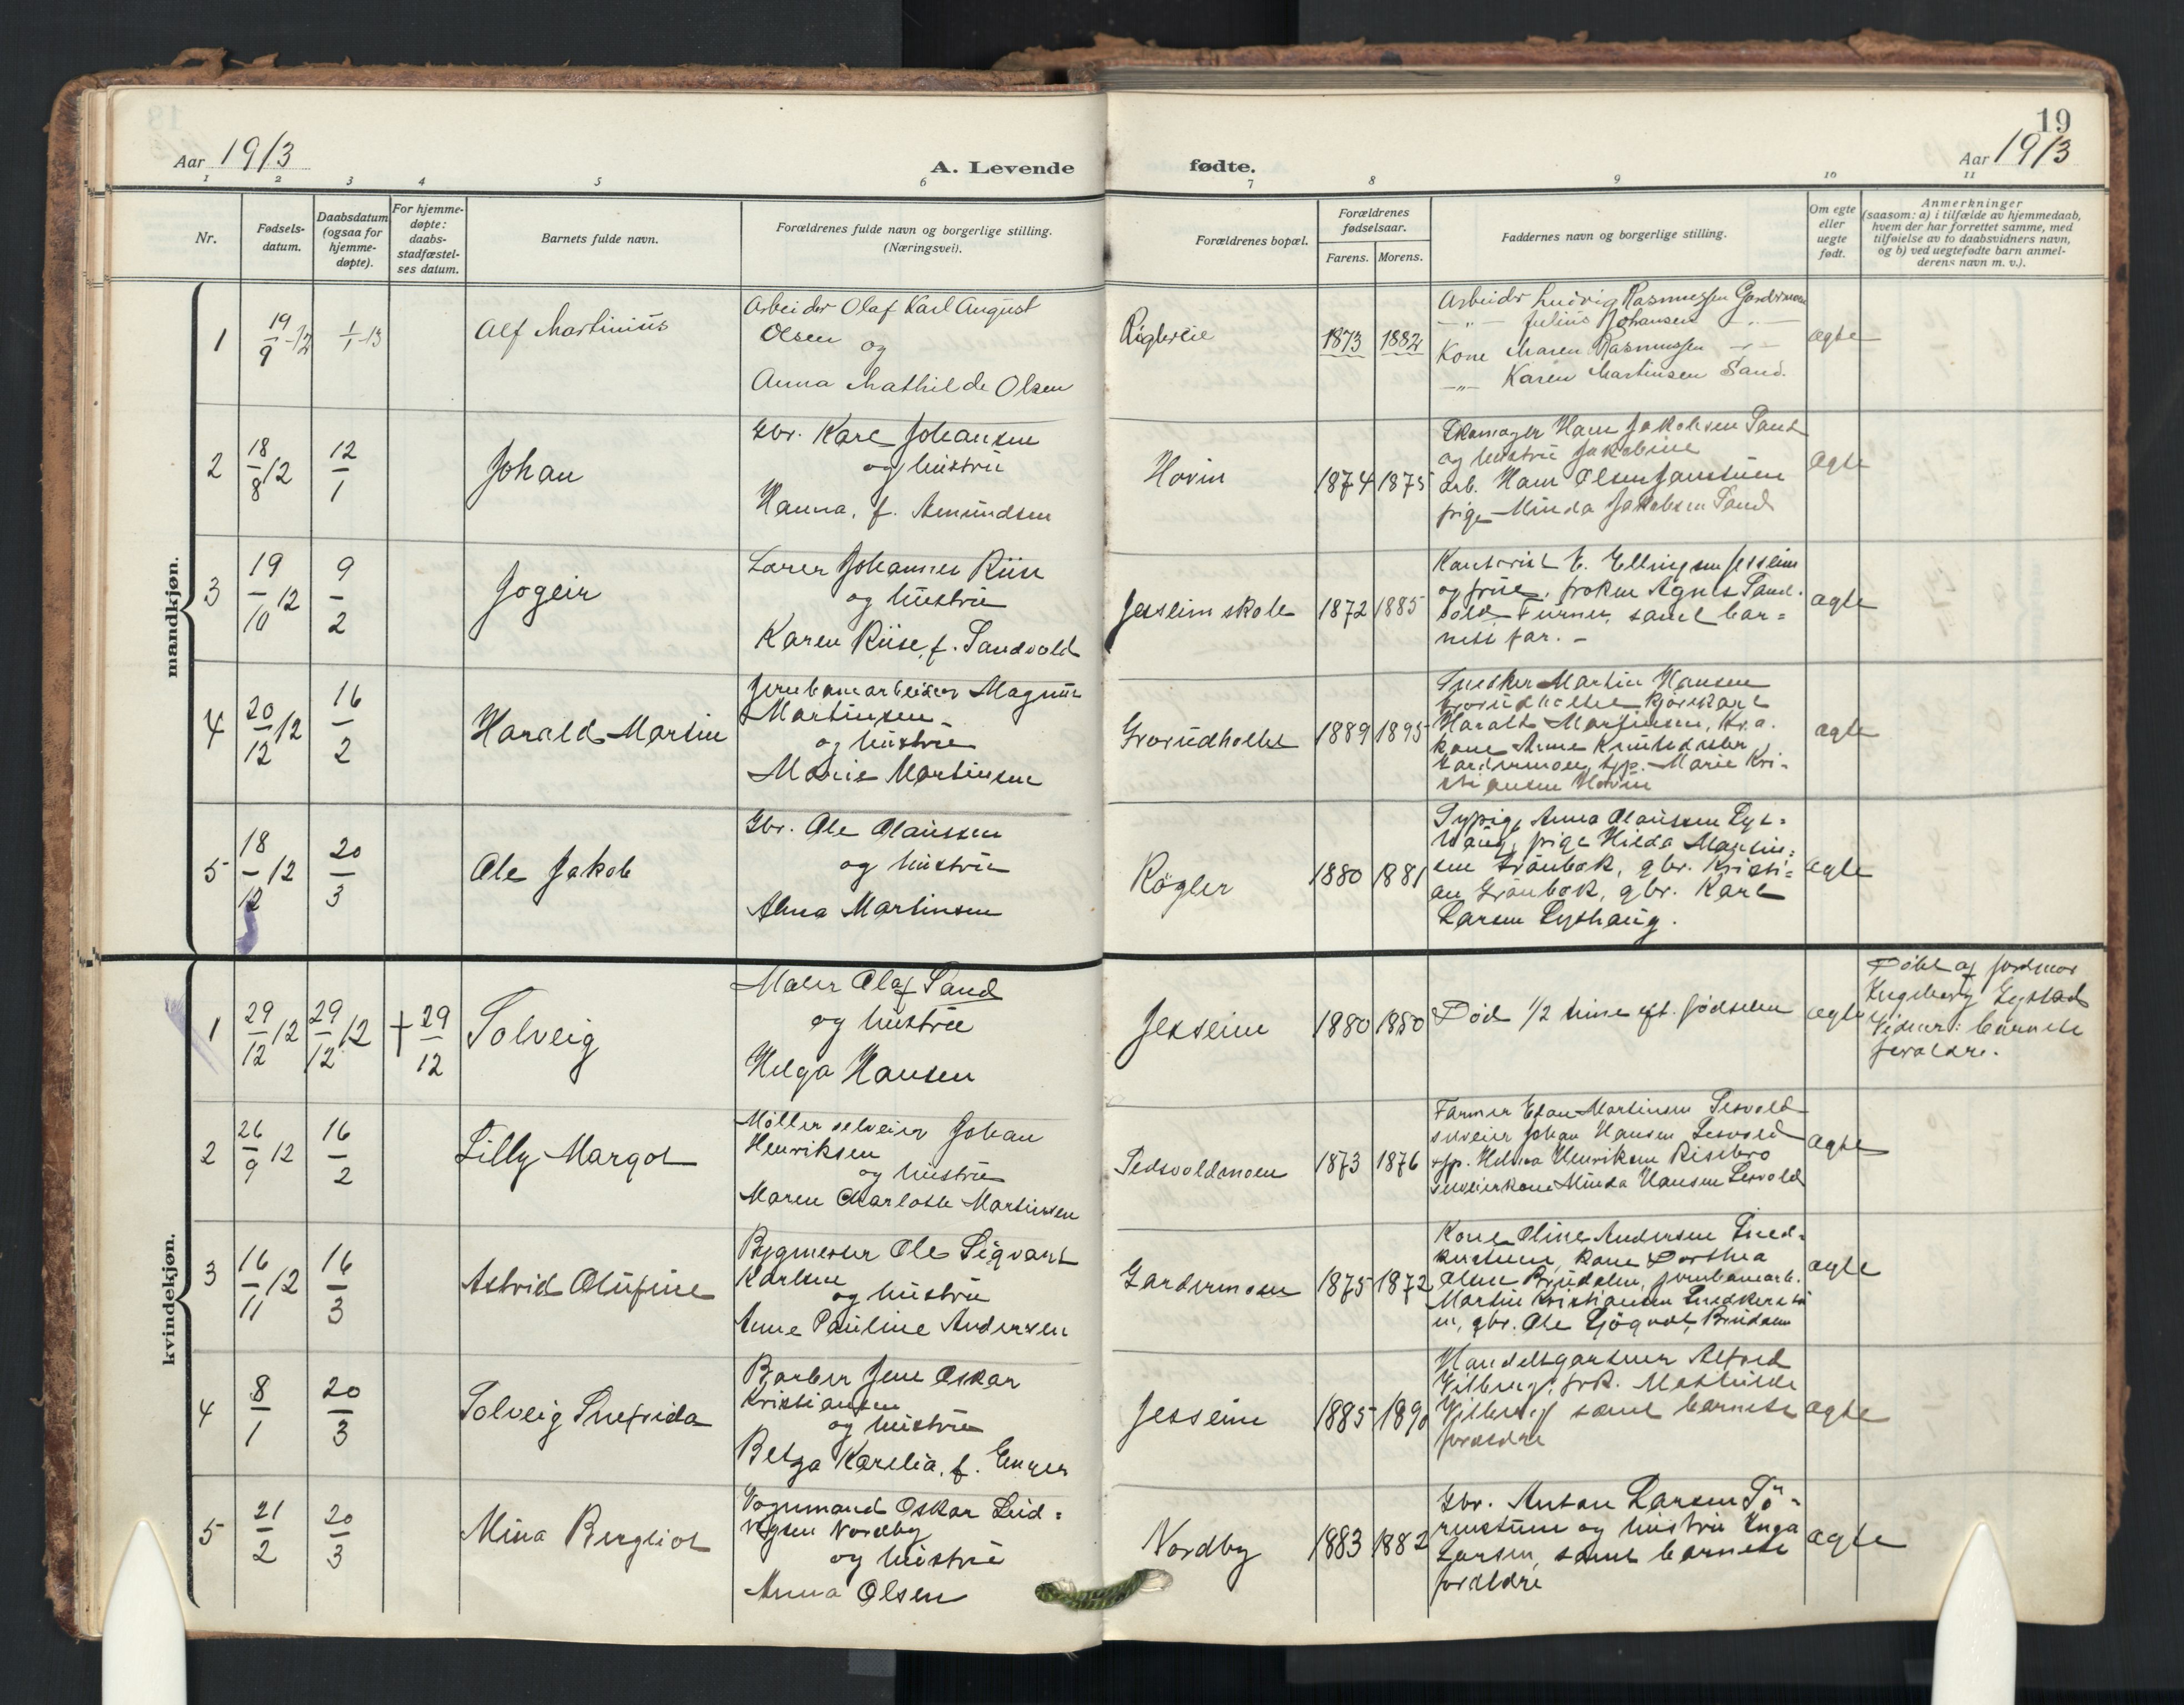 19
Aar 1913
A. Levende fødte.
Aar 1913
1 2 3 4 5 6 7 8 9 10 11
Nr.
Fødsels-
datum.
Daabsdatum
(ogsaa for
hjemme-
døpte).
For hjemme-
døpte:
daabs-
stadfæstel-
ses datum.
Barnets fulde navn.
Forældrenes fulde navn og borgerlige stilling.
(Næringsvei).
Forældrenes bopæl.
Forældrenes
fødselsaar.
Farens. Morens.
Faddernes navn og borgerlige stilling.
Om egte
eller
uegte
født.
Anmerkninger
(saasom: a) i tilfælde av hjemmedaab,
hvem der har forrettet samme, med
tilføielse av to daabsvidners navn,
og b) ved uegtefødte barn anmel-
derens navn m. v.).
mandkjøn.
1
19/9-12
1/1-13
Alf Martinius
Arbeider Olaf Karl August
Olsen og
Anna Mathilde Olsen
Røglereie
1873 1882
Arbeider Ludvig Rasmussen Gardermoen
-"- Julius Johansen -"-
Kone Maren Rasmussen -"-
-"- Karen Martinsen Sand.
ægte
2
18/8 12
12/1
Johan
Gbr. Karl Johansen
og hustru
Hanna, f. Amundsen
Hovin
1874 1875
Skomager Hans Jakobsen Sand
og hustru Jakobine
arb. Hans Olsen
pige Minda Jakobsen Sand
ægte
3
19/10 12
9/2
Jogeir
Lærer Johannes Riise
og hustru
Karen Riise, f. Sandvold
Jessheim skole
1872 1885
Kontorist E. Ellingsen Jessheim
og frue, frøken Agnes Sand-
vold Furner, samt bar=
nets far. -
ægte
4
20/12 12
16/2
Harald Martin
Jernbanearbeider Magnus
Martinsen
og hustru
Marie Martinsen
Grorudholtet
1889 1895
Snedker Martin Hansen
Grorudholtet kjørekarl
Harald Martinsen, Kr.a.
kone Anne
Gardermoen, syp. Marie Kri-
stiansen Hovin
ægte
5
18/12 12
20/3
Ole Jakob
Gbr. Ole Olaussen
og hustru
Alma Martinsen
Røgler
1880 1881
Sypige Anna Olaussen Lys=
haug, pige Hilda Martin=
sen Grønbæk, gbr. Kristi=
an Grønbæk, gbr. Karl
Larsen Lyshaug.
ægte
kvindekjøn.
1
29/12 12
29/12 12
+ 29/12
Solveig
Maler Olaf Sand
og hustru
Helga Hansen
Jessheim
1880 1880
Død 1/2 time eft. fødselen
ægte
Døbt af jordmor
Ingeborg Lystad
Vidner: barnets
forældre.
2
26/9 12
16/2
Lilly Margot
Møller selveier Johan
Henriksen
og hustru
Maren Charlotte Martinsen
Tesvoldmoen
1873 1876
Farmer Edan Martinsen Lesvold
selveier Johan Hansen Lesvold
syp. Helma Henriksen Risebro
selveierkone Minda Hansen Lesvold
ægte
3
16/11 12
16/3
Astrid Olufine
Bygmester Ole Sigvart
Karlsen
og hustru
Anne Pauline Andersen
Gardermoen
1875 1872
Kone Oline Andersen Sned-
kerstuen, kone Dorthea
Olsen Brudalen, jernbanearb.
Martin Kristiansen Snedkerstu
en, gbr. Ole Sjøqvol, Brudalen
ægte
4
8/1
20/3
Solveig Snefrida
Barber Jens Oskar
Kristiansen
og hustru
Betza Karelia, f. Enger
Jessheim
1885 1890
Handelsgartner Alfred
Vilberg, frk. Mathilde
Vilberg samt barnets
forældre
ægte
5
21/2
20/3
Mina Bergliot
Vognmand Oskar Lud=
vigsen Nordby
og hustru
Anna Olsen
Nordby
1883 1882
Gbr. Anton Larsen Tö-
merstuen og hustru Inga
Larsen, samt barnets
forældre
ægte